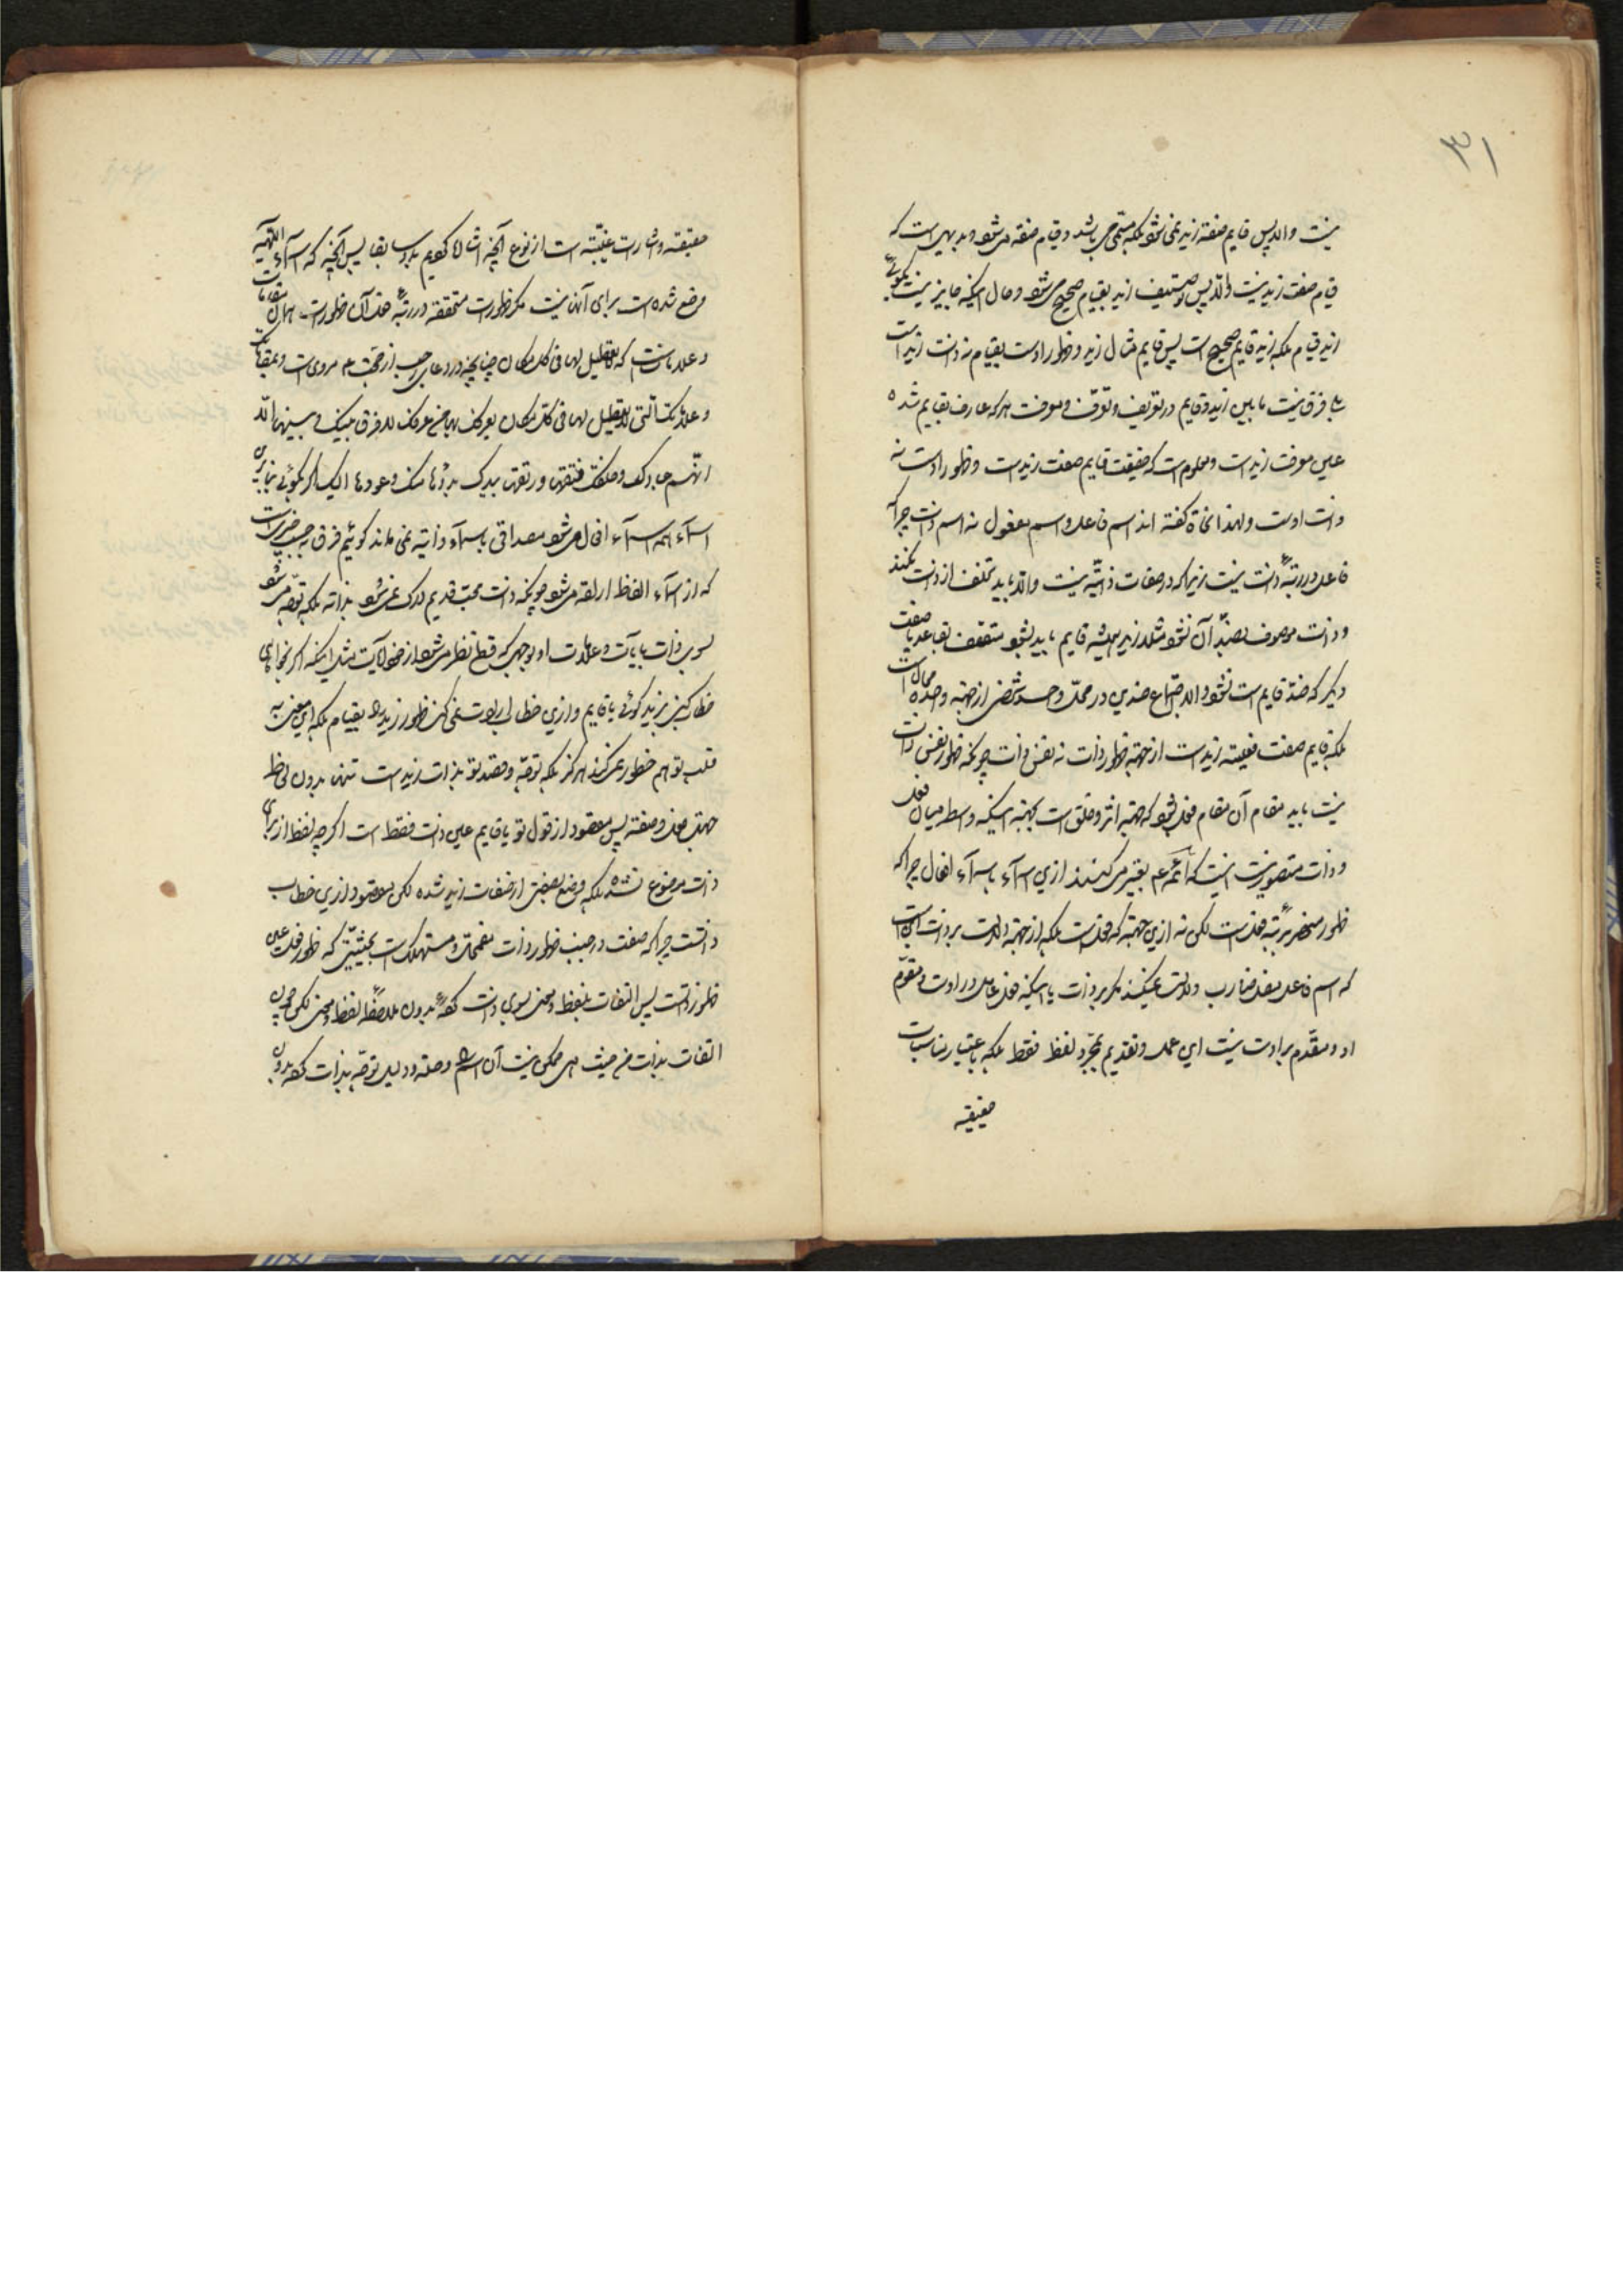 ۳۱
نیست والا پس قایم صفة زید نمی شود بلکه مسمّی می باشد و قیام صفة می شود و بدیهی است که
قیام صفت زید نیست والّا پس توصیف زید بقیام صحیح می شود و حال اینکه جایز نیست بگوئی
زید قیام بلکه زید قایم صحیح است پس قایم مثال زید و ظهور اوست بقیام نه ذات زید است
بلی فرق نیست مابین زید و قایم در تعریف و تعرّف و معرفت هرکه عارف بقایم شده
عین معرفت زید است و معلوم است که حقیقت قایم صفت زید است و ظهور اوست نه
ذات اوست و لهذا نحاة گفته اند اسم فاعل و اسم مفعول نه اسم ذات چرا که
فاعل در رتبهٔ ذات نیست زیرا که در صفات ذاتیّه نیست والّا باید تخلف از ذات نکند
و ذات موصوف بضدّ آن نشود مثلا زید همیشه قایم باید بشود متصّف بقاعد یا صفت
دیگر که ضدّ قایم است نشود والا اجتماع ضدین در محلّ واحد شخصی از جهة واحده محال است
بلکه قایم صفت فعلیه زید است از جهة ظهور ذات نه نفس ذات چونکه ظهور نفس ذات
نیست باید مقام آن مقام فعل بشود که جهة اثر و خلق است بجهة اینکه واسطه میان فعل
و ذات متصور نیست اینست که ائمّه ع تعبیر می کنند ازین اسماء باسماء افعال چرا که
ظهور منحصر برتبه فعلست لکن نه ازین جهة که فعلست بلکه از جهة دلالت بر ذات این است
که اسم فاعل مثل ضارب دلالت نمیکند مگر بر ذات با اینکه فعل عامل در اوست و مقوّم
او و مقدّم بر اوست نیست این عمل و تقدیم بمجرّد لفظ فقط بلکه باعتبار مناسبات
حقیقیه
حقیقیه و اشارات غیبیّه است از نوع آنچه اشاره کردیم بر او سابقا پس آنچه که اسماء اللهیه
وضع شده است برای آنها نیست مگر ظهورات متحققه در رتبهٔ خلق آن ظهورات همان مقامات
و علاماتست که لاتعطیل لها فی کل مکان چنانچه در دعای رجب از حجّت ع مروی است و بمقاماتک
و علاماتک التی لاتعطیل لها فی کل مکان یعرفک بها من عرفک لا فرق بینک و بینها الّا
انّهم عبادک و خلقک فتقها و رتقها بیدک بدؤها منک و عودها الیک اگر بگوئی بنابرین
اسماء همه اسماء افعال می شود مصداقی باسماء ذاتیه نمی ماند گوئیم فرق بحسب چیزیست
که از اسماء الفاظ اراده می شود چونکه ذات بحت قدیم درک نمی شود بذاته بلکه توجّه می شود
بسوی ذات بآیات و علامات او بوجهی که قطع نظر می شود از خود آیات مثل اینکه اگر بخواهی
خطاب کنی بزید گوئی یا قایم و ازین خطاب اراده نمی کنی ظهور زید را بقیام بلکه این معنی به
قلب تو هم خطور نمی کند هرگز بلکه توجّه و قصد تو بذات زید است تنها بدون لحاظ
جهة فعل و صفة پس مقصود از قول تو یا قایم عین ذات فقط است اگرچه لفظ از برای
ذات موضوع نشده بلکه وضع بعضی از صفات زید شده لکن مقصود ازین خطاب
ذاتست چرا که صفت در جنب ظهور ذات مضمحل و مستهلک است بحیثیتی که ظهور فعل عین
ظهور ذاتست پس التفات بلفظ و معنی بسوی ذات کفّهٔ بدون ملاحظه لفظ و معنی لکن چون
التفات بذات من حیث هی ممکن نیست آن اسم وصله و دلیل توجّه بذات کفّه بدون